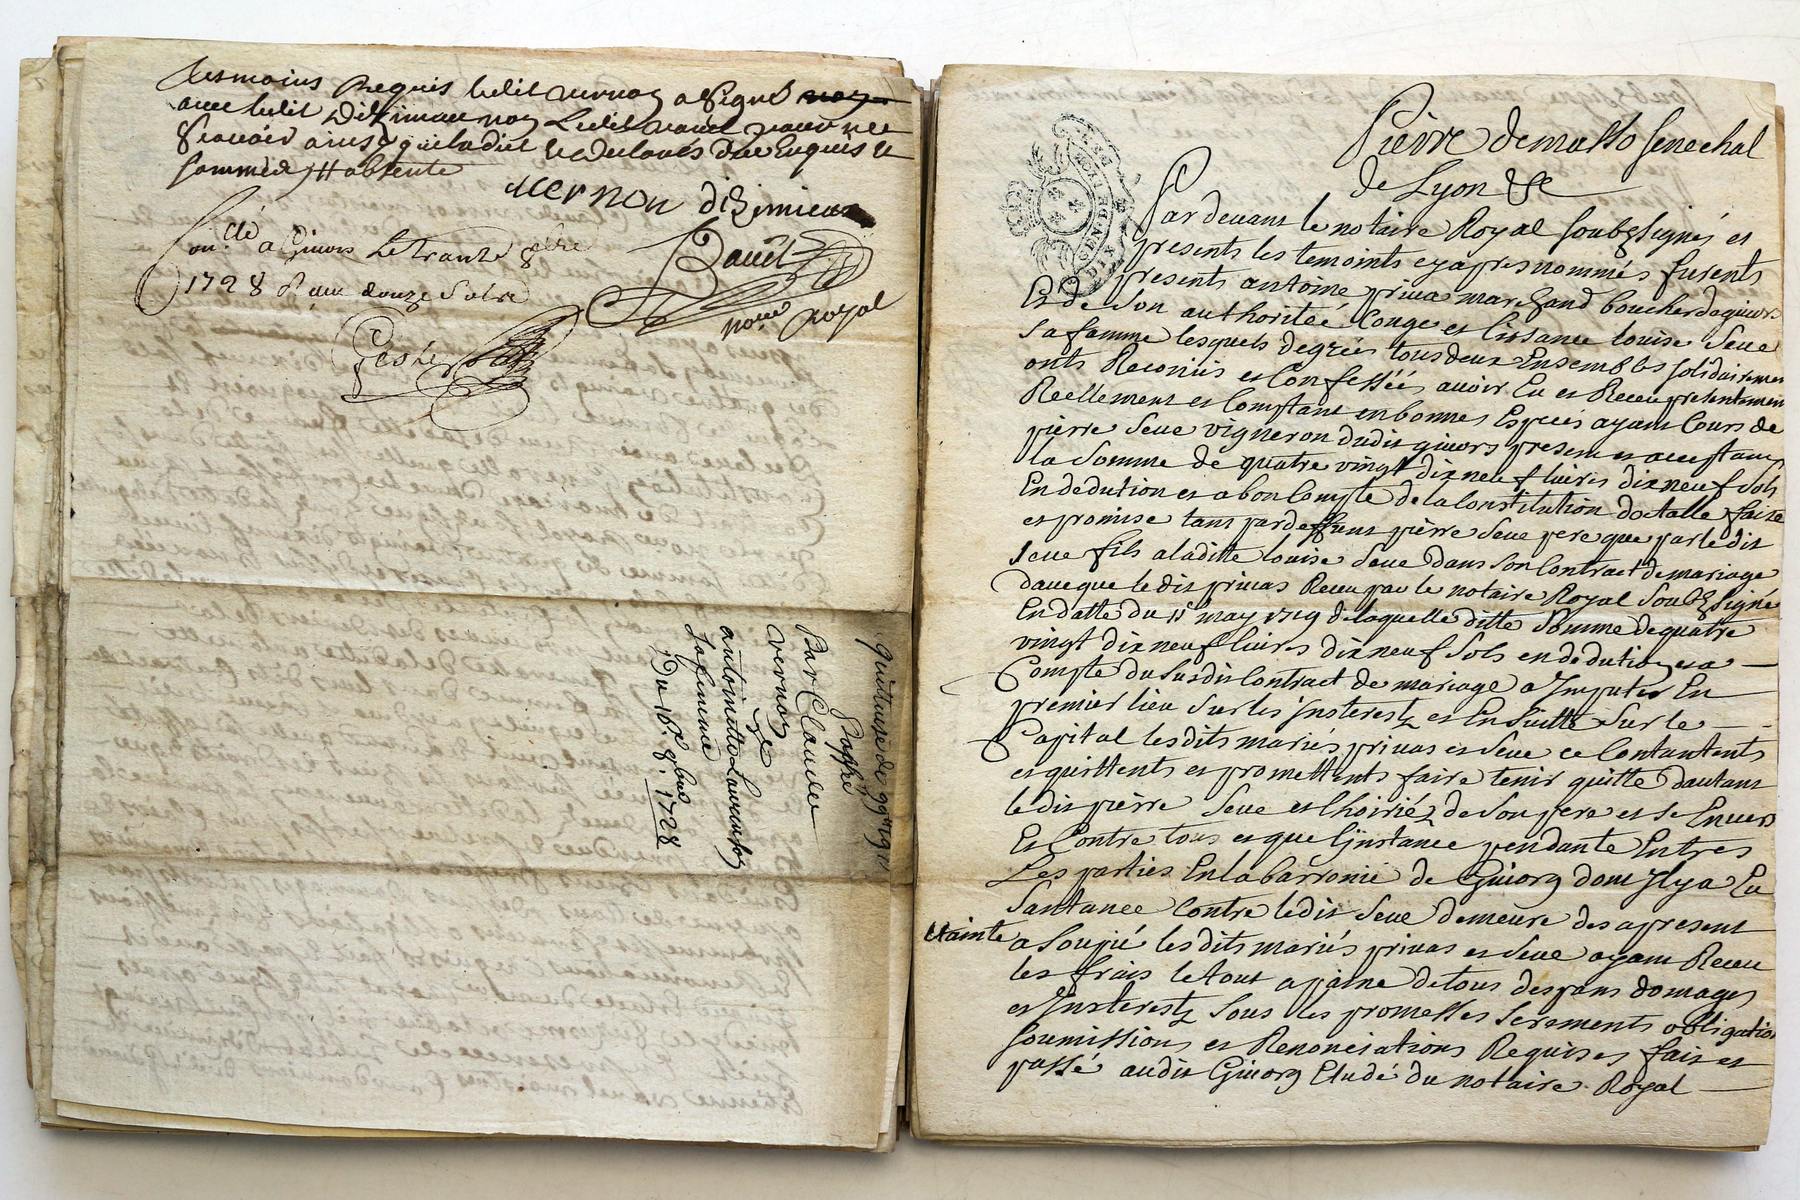 tesmoins Requis ledit vernay a signé
avec ledit Dizimieu non Ledit
scavoir ainsy quil a dit et declaré Due Enquis et
sommée ## absente
vernon diZimieu
con.lé a Givors Le trante 8bre
1728 R. douze sols
Bauët
no.re Royal
quittance de 99ll 19s
passé
Par Claude
vernay
et
antoinette
sa femme
Du 16e 8. 1728
Pierre demasso senechal
de Lyon &c
Par devant le notaire Royal soubzsignés et
presents les temoints cy apres nommés furents
presents antoine privas marchand boucher de givors
Et de son authoritée Conge et lissance louise Seue
sa famme lesquels degrées tous deux Ensembles solidairement
onts Reconnus et Confessées avvoir Eu et Receu presentement
Reellement et Comptant en bonnes Especes ayant Cours de
pierre Seue vigneron dudit givors present et acceptant
la Somme de quatre vingt dix neuf livres dix neuf sols
En dedution et a bon Compte de la Constitution dotalle faite
et promise tant par deffunt pierre Seue pere que par le dit
Seue fils a laditte louise Seue dans son Contract de mariage
davec que le dit privas Receu par le notaire Royal Soubzsigné
En datte du 11e may 1719 de laquelle ditte Somme de quatre
vingt dix neuf livres dix neuf sols en dedution et a
Compte du susdit Contract de mariage a Imputer En
premier lieu Sur les Insterestz et En suitte Sur le
Capital lesdits mariés privas et Seue ce Contantents
et quisttents et promettents faire tenir quitte dautant
le dit pierre Seue et lhoiriéz de son pere et se Envers
Et Contre tous et que L'instance pendante Entres
Les parties En la barronie de Givors dont Il y a Eu
Santance Contre ledit Seue demeure des a present
a Soupié les dits mariés privas et Seue ayant Receu
les frais le tout a paine de tous despans domages
et Insterestz Sous les promesses Serements obligation
soumissions et Renonciations Requises fait et
passé audit Givors Etude du notaire Royal